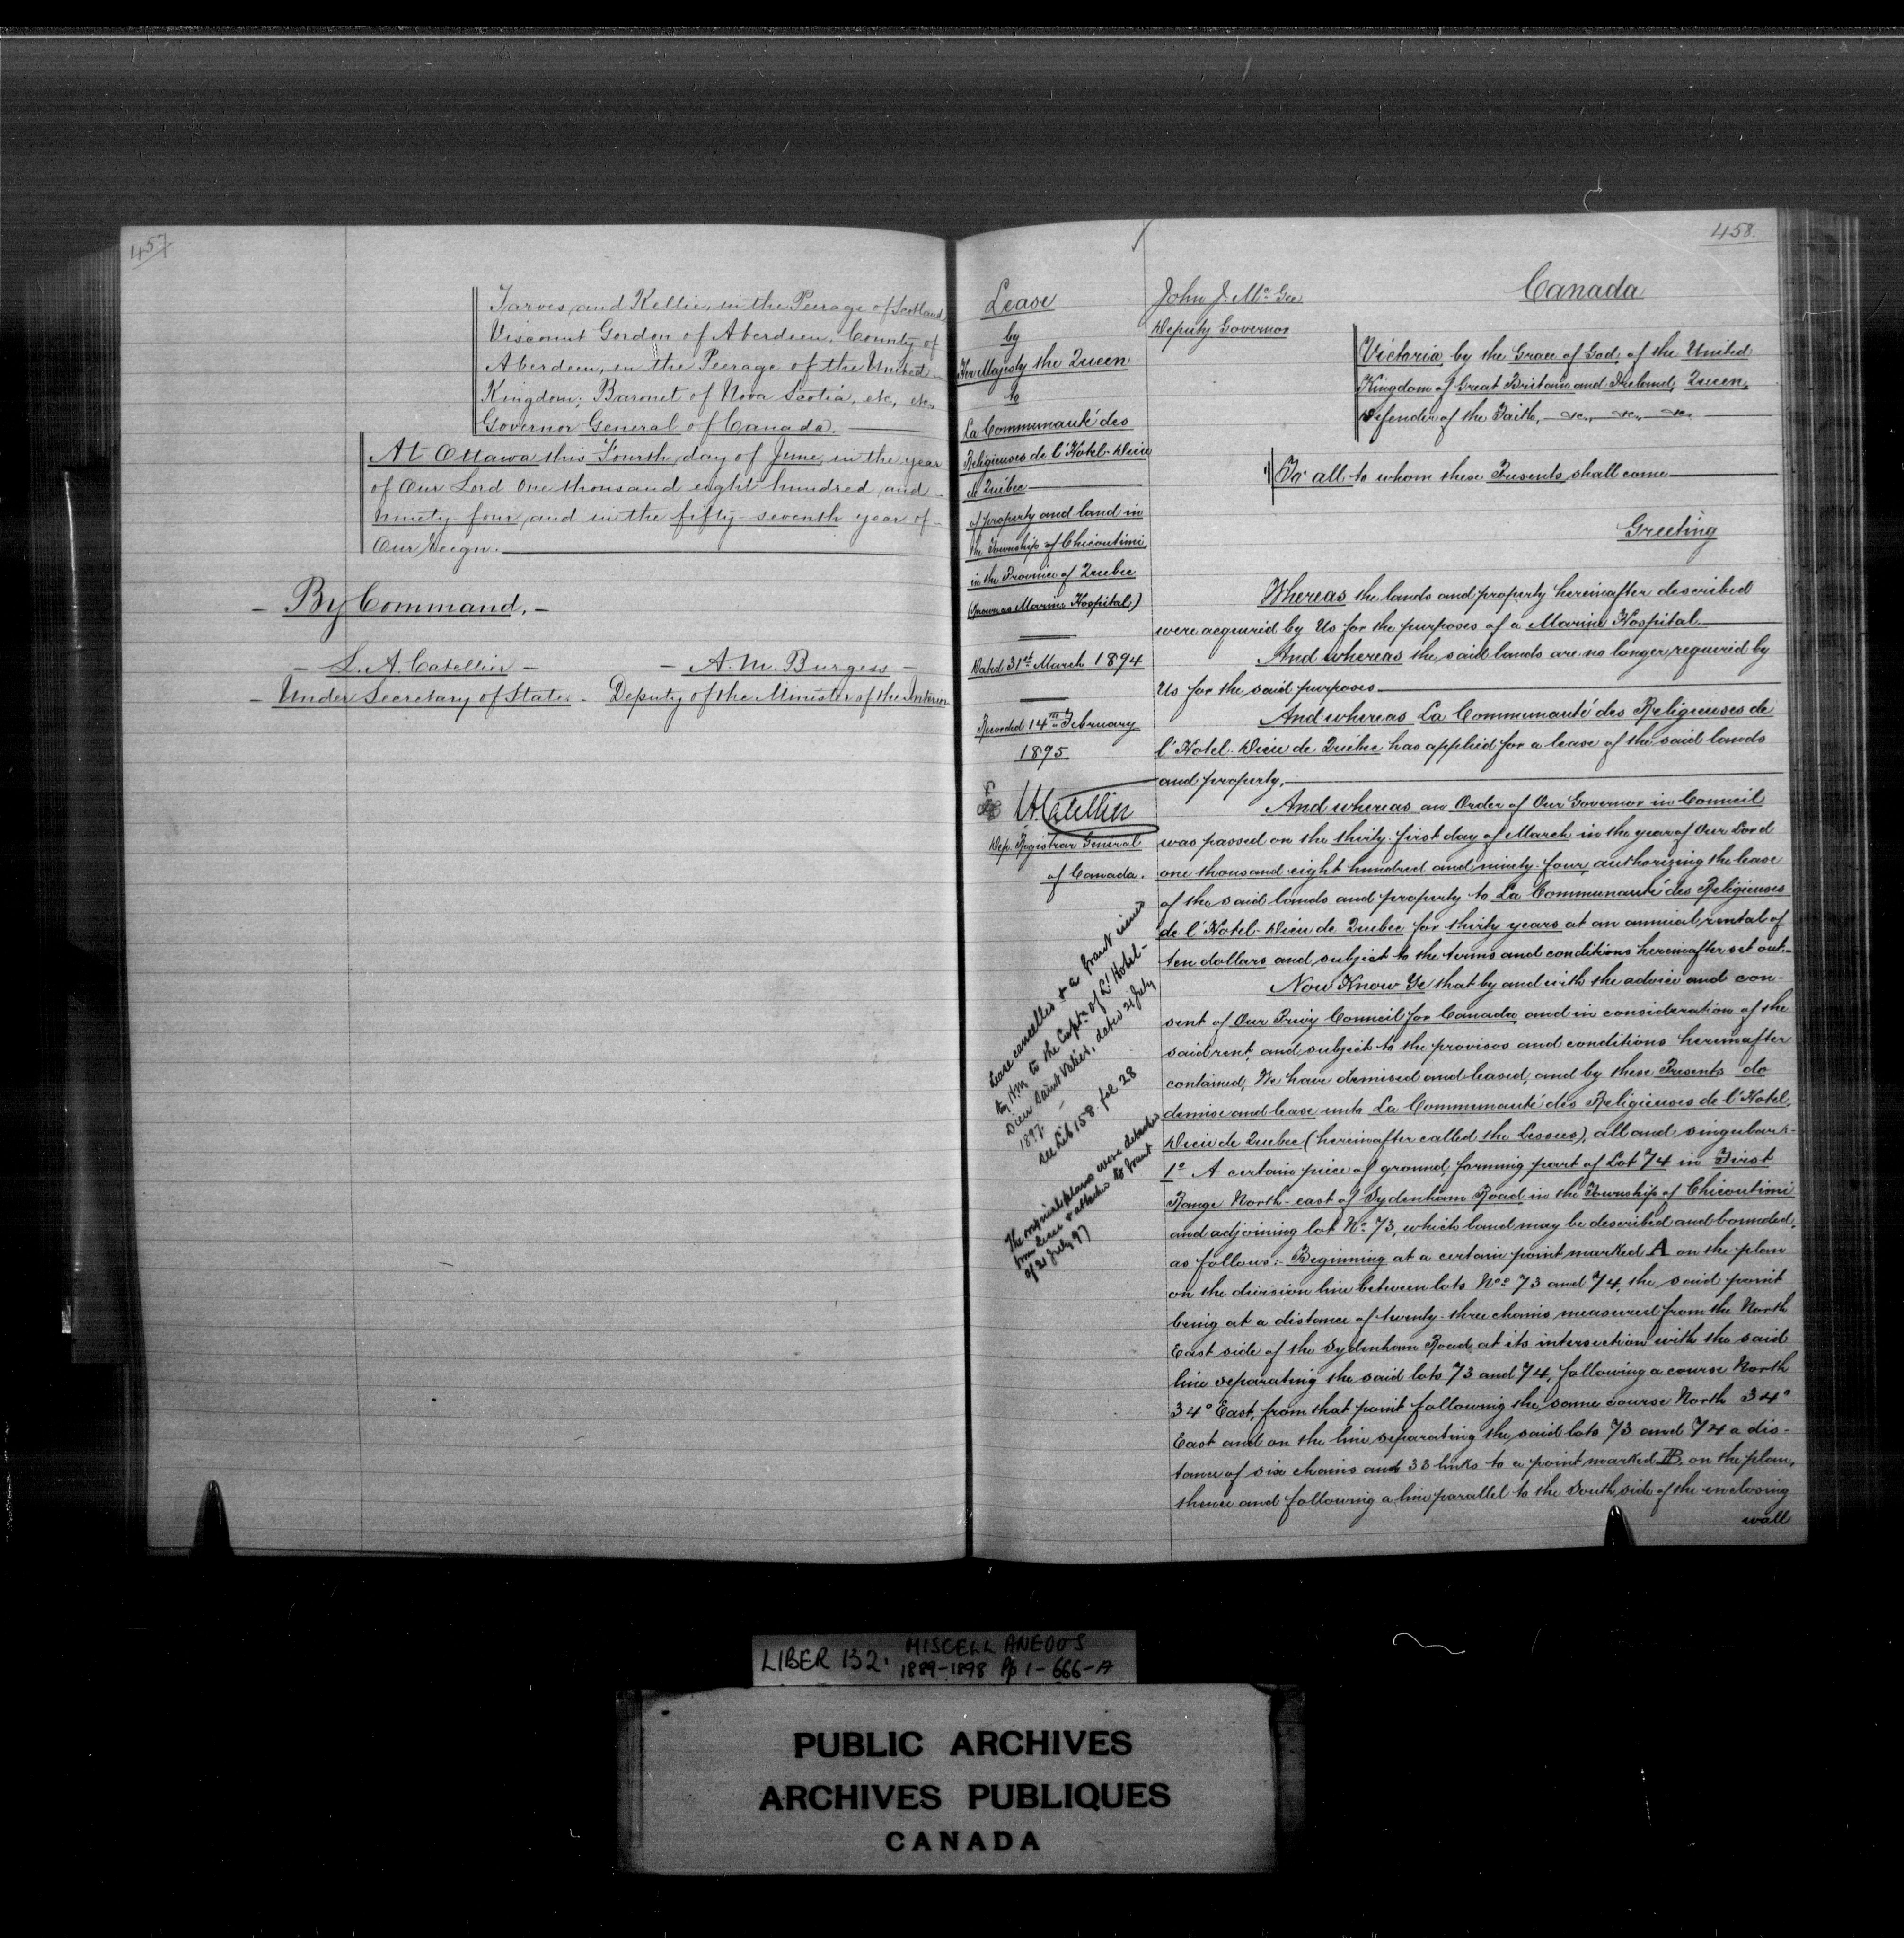 457
Tarves, and Kellie, in the Peerage of Scotland,
Viscount Gordon of Aberdeen, County of
Aberdeen, in the Peerage of the United
Kingdom; Baronet of Nova Scotia, etc, etc,
Governor General of Canada.
At Ottawa this Fourth day of June, in the year
of Our Lord One thousand eight hundred and
ninety four, and in the fifty-seventh year of
Our Reign.
- By Command, -
- L. A. Catellier -
- Under Secretary of State. -
- A. M. Burgess -
Deputy of the Minister of the Interior
458.
Lease
by
Her Majesty the Queen
to
La Communauté des
Religieuses de l'Hotel-Dieu
de Québec
of property and land in
the Township of Chicoutimi,
in the Province of Quebec
(Known as Marine Hospital.)
Dated 31st March 1894
Recorded 14th February
1895.
L.A. Catellier
Dep. Registrar General
of Canada.
Lease cancelled & a Grant issued
by H.M. to the Capt. of L'Hotel-
Dieu Saint Valier, dated 21 July
1897.
See Lib 158. fol 28
The original plans were detached
from lease & attached to Grant
of 21 July 97
John J. McGee
Deputy Governor
Canada
Victoria, by the Grace of God, of the United
Kingdom of Great Britain and Ireland, Queen,
Defender of the Faith, &c., &c., &c.
To all to whom these Presents shall come
Greeting
Whereas the lands and property hereinafter described
were acquired by Us for the purposes of a Marine Hospital
And whereas the said lands are no longer required by
Us for the said purposes
And whereas La Communauté des Religieuses de
l'Hotel-Dieu de Québec has applied for a lease of the said lands
and property,
And whereas an Order of Our Governor in Council
was passed on the thirty-first day of March in the year of Our Lord
one thousand eight hundred and ninety-four, authorizing the lease
of the said lands and property to La Communauté des Religieuses
de l'Hotel-Dieu de Quebec for thirty years at an annual rental of
ten dollars and subject to the terms and conditions hereinafter set out.-
Now Know Ye that by and with the advice and con-
sent of Our Privy Council for Canada, and in consideration of the
said rent, and subject to the provisos and conditions hereinafter
contained, We have demised and leased, and by these Presents do
demise and lease unto La Communauté des Religieuses de l'Hotel
Dieu de Quebec (hereinafter called the Lessees), all and singular:-
1º A certain piece of ground, forming part of Lot 74 in First
Range North-east of Sydenham Road in the Township of Chicoutimi
and adjoining lot No. 73, which land may be described and bounded,
as follows:- Beginning at a certain point marked A on the plan
on the division line between lots Nos 73 and 74, the said point
being at a distance of twenty-three chains measured from the North
East side of the Sydenham Road at its intersection with the said
line separating the said lots 73 and 74, following a course North
34° East, from that point following the same course North 34°
East and on the line separating the said lots 73 and 74 a dis-
tance of six chains and 33 links to a point marked B, on the plan,
thence and following a line parallel to the South side of the enclosing
wall
LIBER 132. MISCELLANEOUS
1889-1898 Pp 1-666-A
PUBLIC ARCHIVES
ARCHIVES PUBLIQUES
CANADA